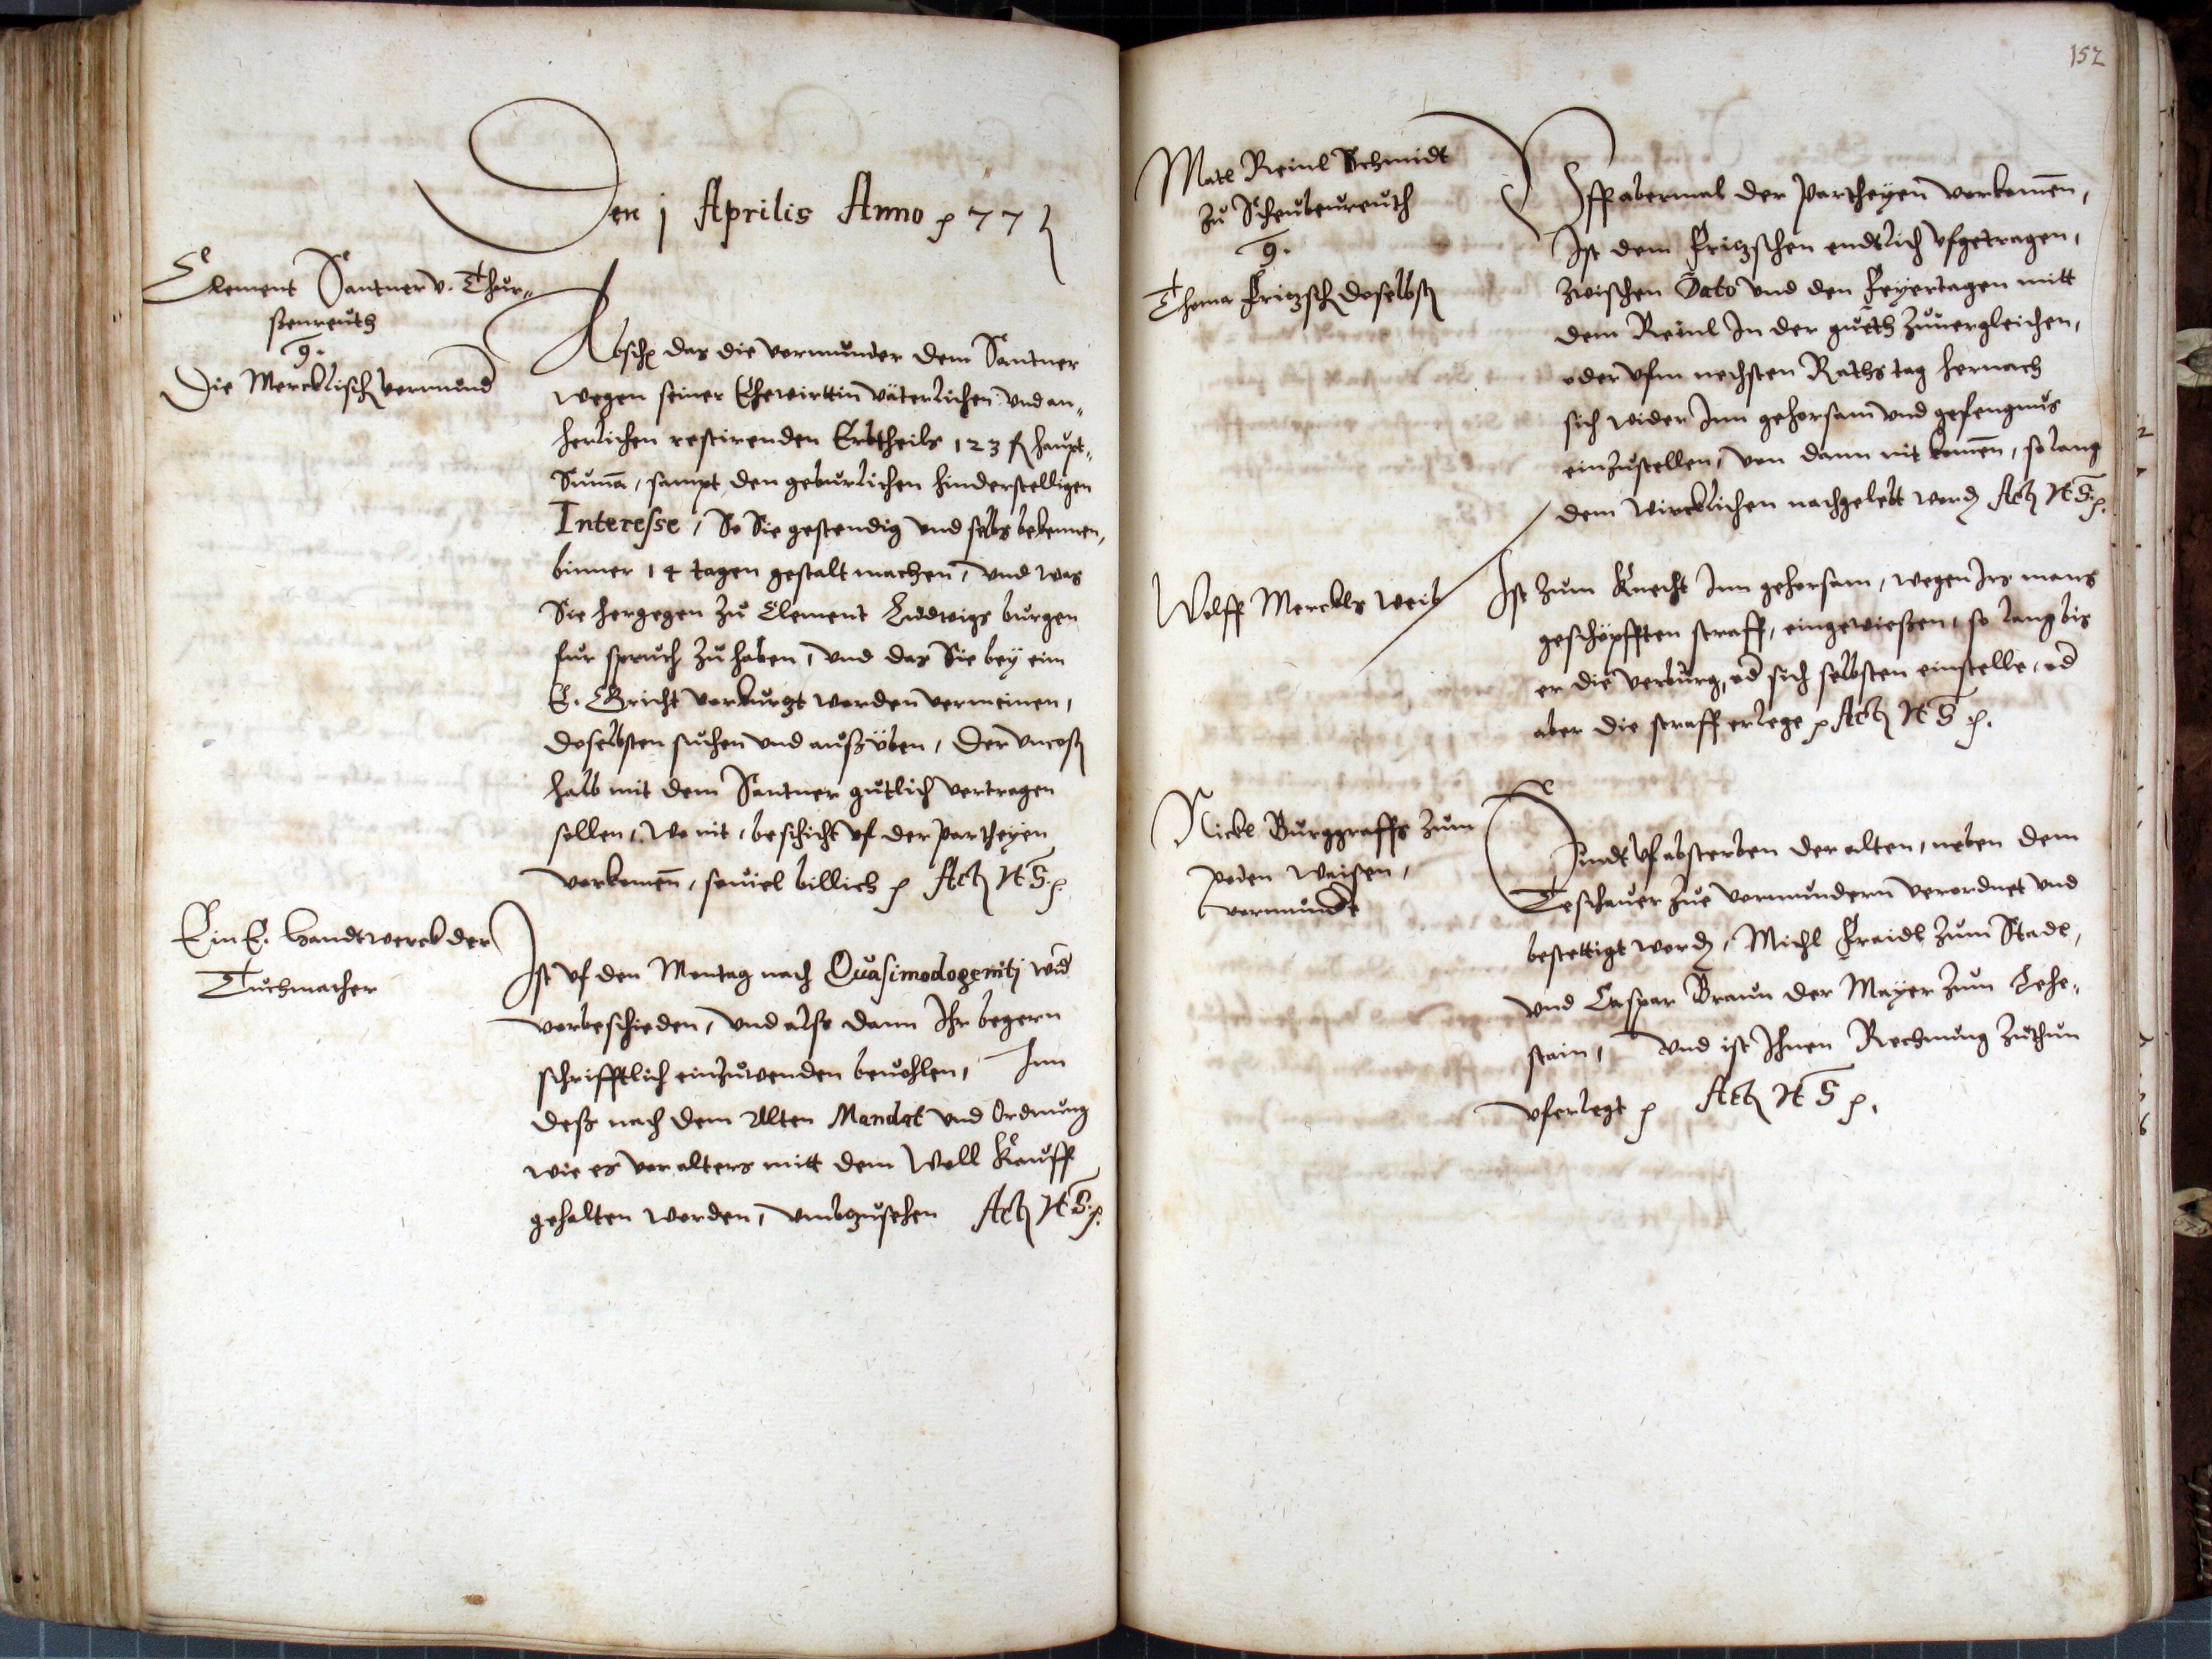 Den j Aprilis Anno p 77
Clement Santner v. Thur„
ßenreuth
g.
Die Mercklisch vermund
Absch das die vormunder dem Santner
wegen seiner Ehewirttin väterlichen und an„
herlichen restirenden Erbtheils 123 fl haupt„
Suma, sampt den geburlichen hinderstelligen
Interesse, So Sie gestendig und selbs bekennen,
binner 14 tagen gestalt machen, und was
Sie hergegen zu Clement Ludwigs burgen
fur spruch zu haben, und das Sie bey eim
E. Gricht verburgt worden vermeinen,
doselbsten suchen und außüben, Der uncost
halb mit dem Santner gutlich vertragen
sollen, Wo nit, beschicht uf der partheyen
vorkomen, souiel billich p Act H S. p.
Ein E. Handtwerck der
Tuchmacher
Ist uf den Montag nach Quasimodogenitj wid
vorbeschieden, und alß dann Ihr begern
schrifftlich einzuwenden beuohlen, Inn
deß nach dem Alten Mandat und Ordnung
wie es vor alters mitt dem Woll Kauff
gehalten worden, umbzusehen Act H S. p.
152
Matl Reinl Schmidt
zu Scheubenreuth
g.
Thoma Fritzsch doselbst
Uff abermal der partheyen vorkomen,
Ist dem Fritzschen endtlich ufgetragen,
zwischen Dato und den Feyertagen mitt
dem Reinl In der gueth zuuergleichen,
oder ufm nechsten Rathstag hernach
sich wider Inn gehorsam und gefengnus
einzustellen, von dann nit komen, so lang
dem wircklichen nachgelebt word Act H S. p.
Wolff Merckls weib
Ist zum Knecht Inn gehorsam, wegen Irs mans
geschöpfften straff, eingewießen, so lang bis
er die verburg, od sich selbsten einstelle, od
aber die straff erlege p Act H S p.
Nickl Burggraffs zum
poden waisen,
vormunde
Sindt uf absterben der alten, neben dem
Teschauer zue vormundern verordnet und
bestettigt word, Michl Fraidl zum Stadl,
und Caspar Braun der Mayer zum Lehe„
stain, und ist Ihnen Rechnung zuthun
uferlegt p Act H S p.